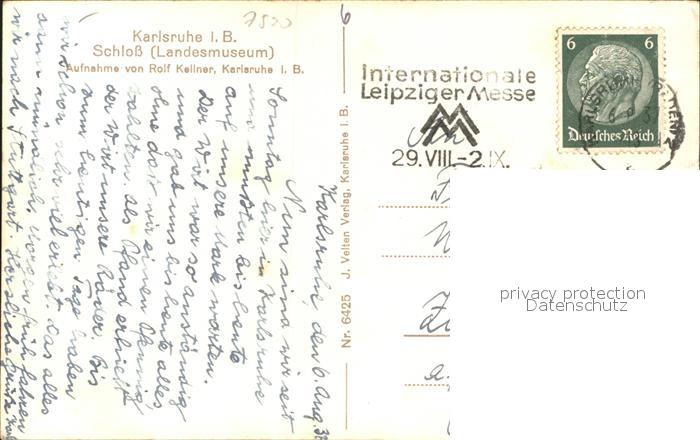 Karlsruhe i. B.
Schloß (Landesmuseum)
Aufnahme von Rolf Kellner, Karlsruhe i. B.
7500
6
Internationale
Leipziger Messe
29. VIII-2. IX.
6 6
Deutsches Reich
Nr. 6425 J. Velten Verlag, Karlsruhe i. B.
Karlsruhe, den 6. Aug.
Nun sind wir seit
Sonntag hier in Karlsruhe
und mußten bis heute
auf unsere Mark warten.
Der Wirt war so anständig
und gab uns bis heute alles
ohne daß wir einen Pfennig
zahlten. Als Pfand erhielt
der Wirt unsere Räder. Bis
zum heutigen Tage haben
wir schon sehr viel erlebt. Das alles
Morgen früh fahren
wir nach Stuttgart. Herzliche Grüße
privacy protection
Datenschutz